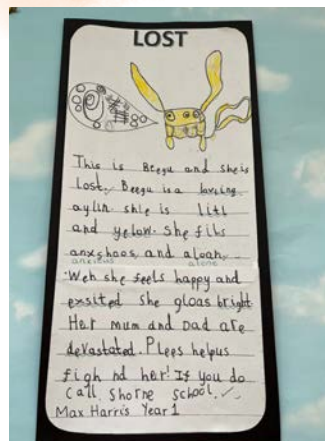 LOST
This is Beegu and she is
lost. Beegu is a loveing
aylin. shie is litl
and yelow. She fils
anxshoos, and aloan.
anxious alone
Weh she feels happy and
exsited she gloas bright.
Her mum and Dad are
devastated. Plees helpus
figh nd her! If you do
call, Shorne School.
Max Harris Year 1